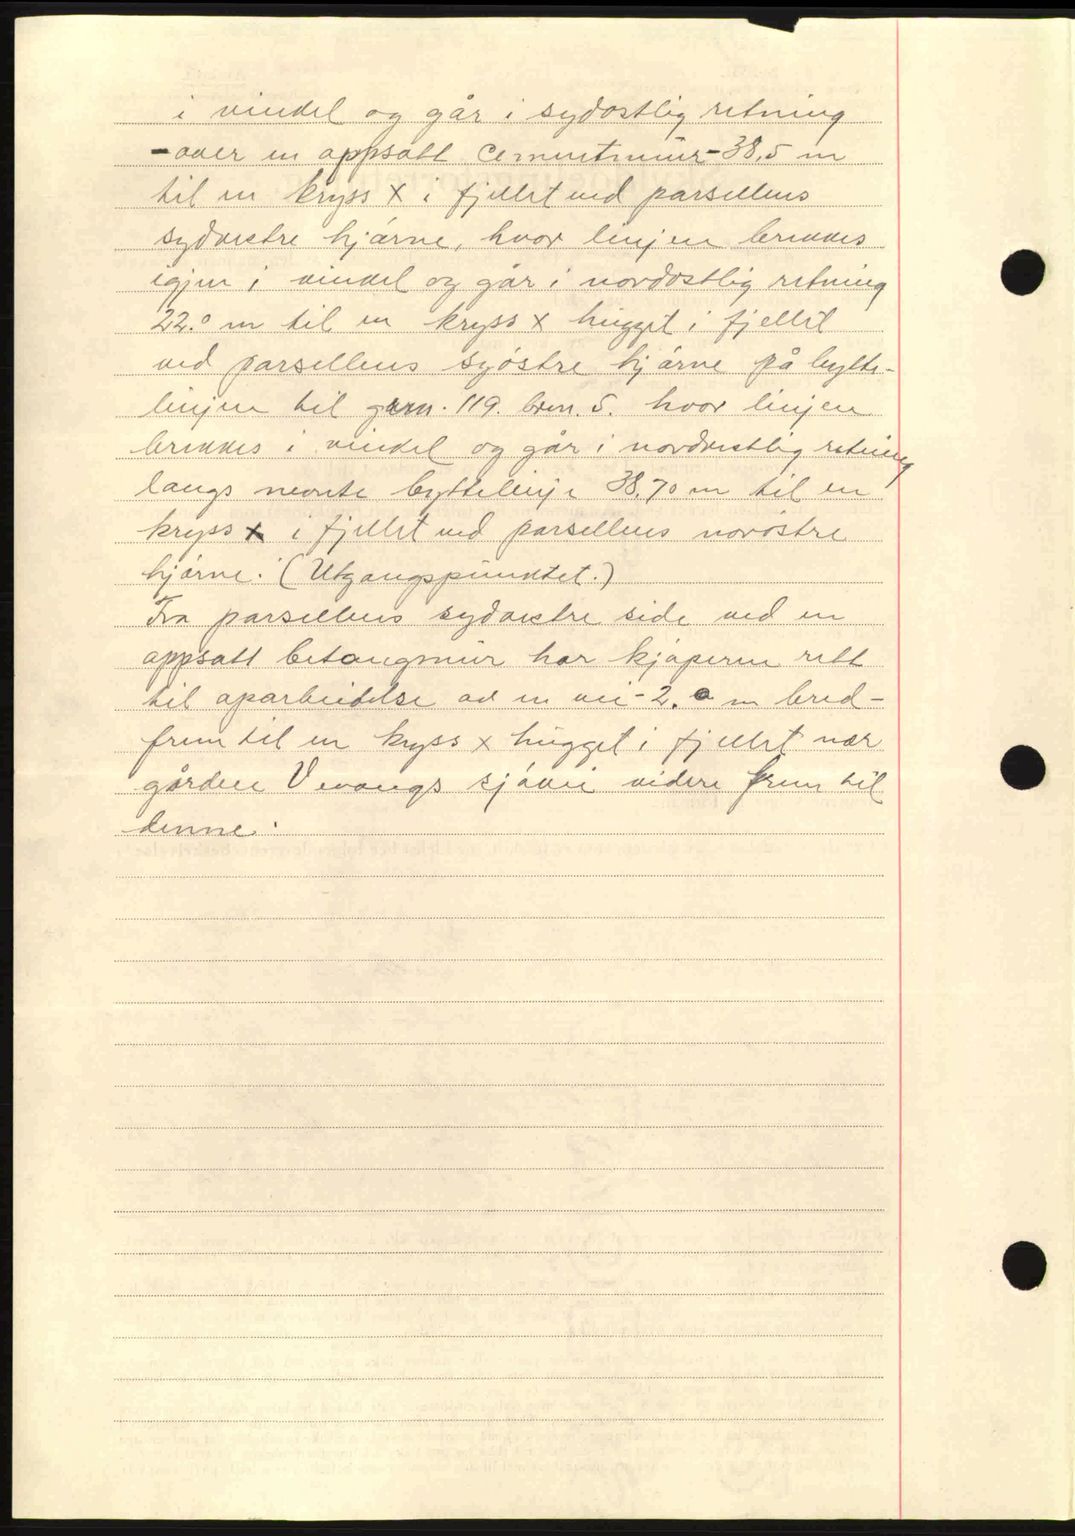 i vinkel og går i sydostlig retning
- over en oppsatt Cementmur - 38,5 m
til en kryss X i fjellet ved parsellens
sydvestre hjørne, hvor linjen brekkes
igjen i vinkel og går i nordostlig retning
22.0 m til en kryss x hugget i fjellet
ved parsellens syøstre hjørne på bytte-
linjen til grn. 119. brn. 5. hvor linjen
brekkes i vinkel og går i nordvestlig retning
langs nevnte byttelinje 38,70 m til en
kryss x i fjellet ved parsellens norøstre
hjørne. (Utgangspunktet.)
Fra parsellens sydvestre side ved en
oppsatt betongmur har kjøperen rett
til oparbeidelse av en vei - 2.0 m bred -
frem til en kryss x hugget i fjellet nær
gården Vevangs sjøvei videre frem til
denne.